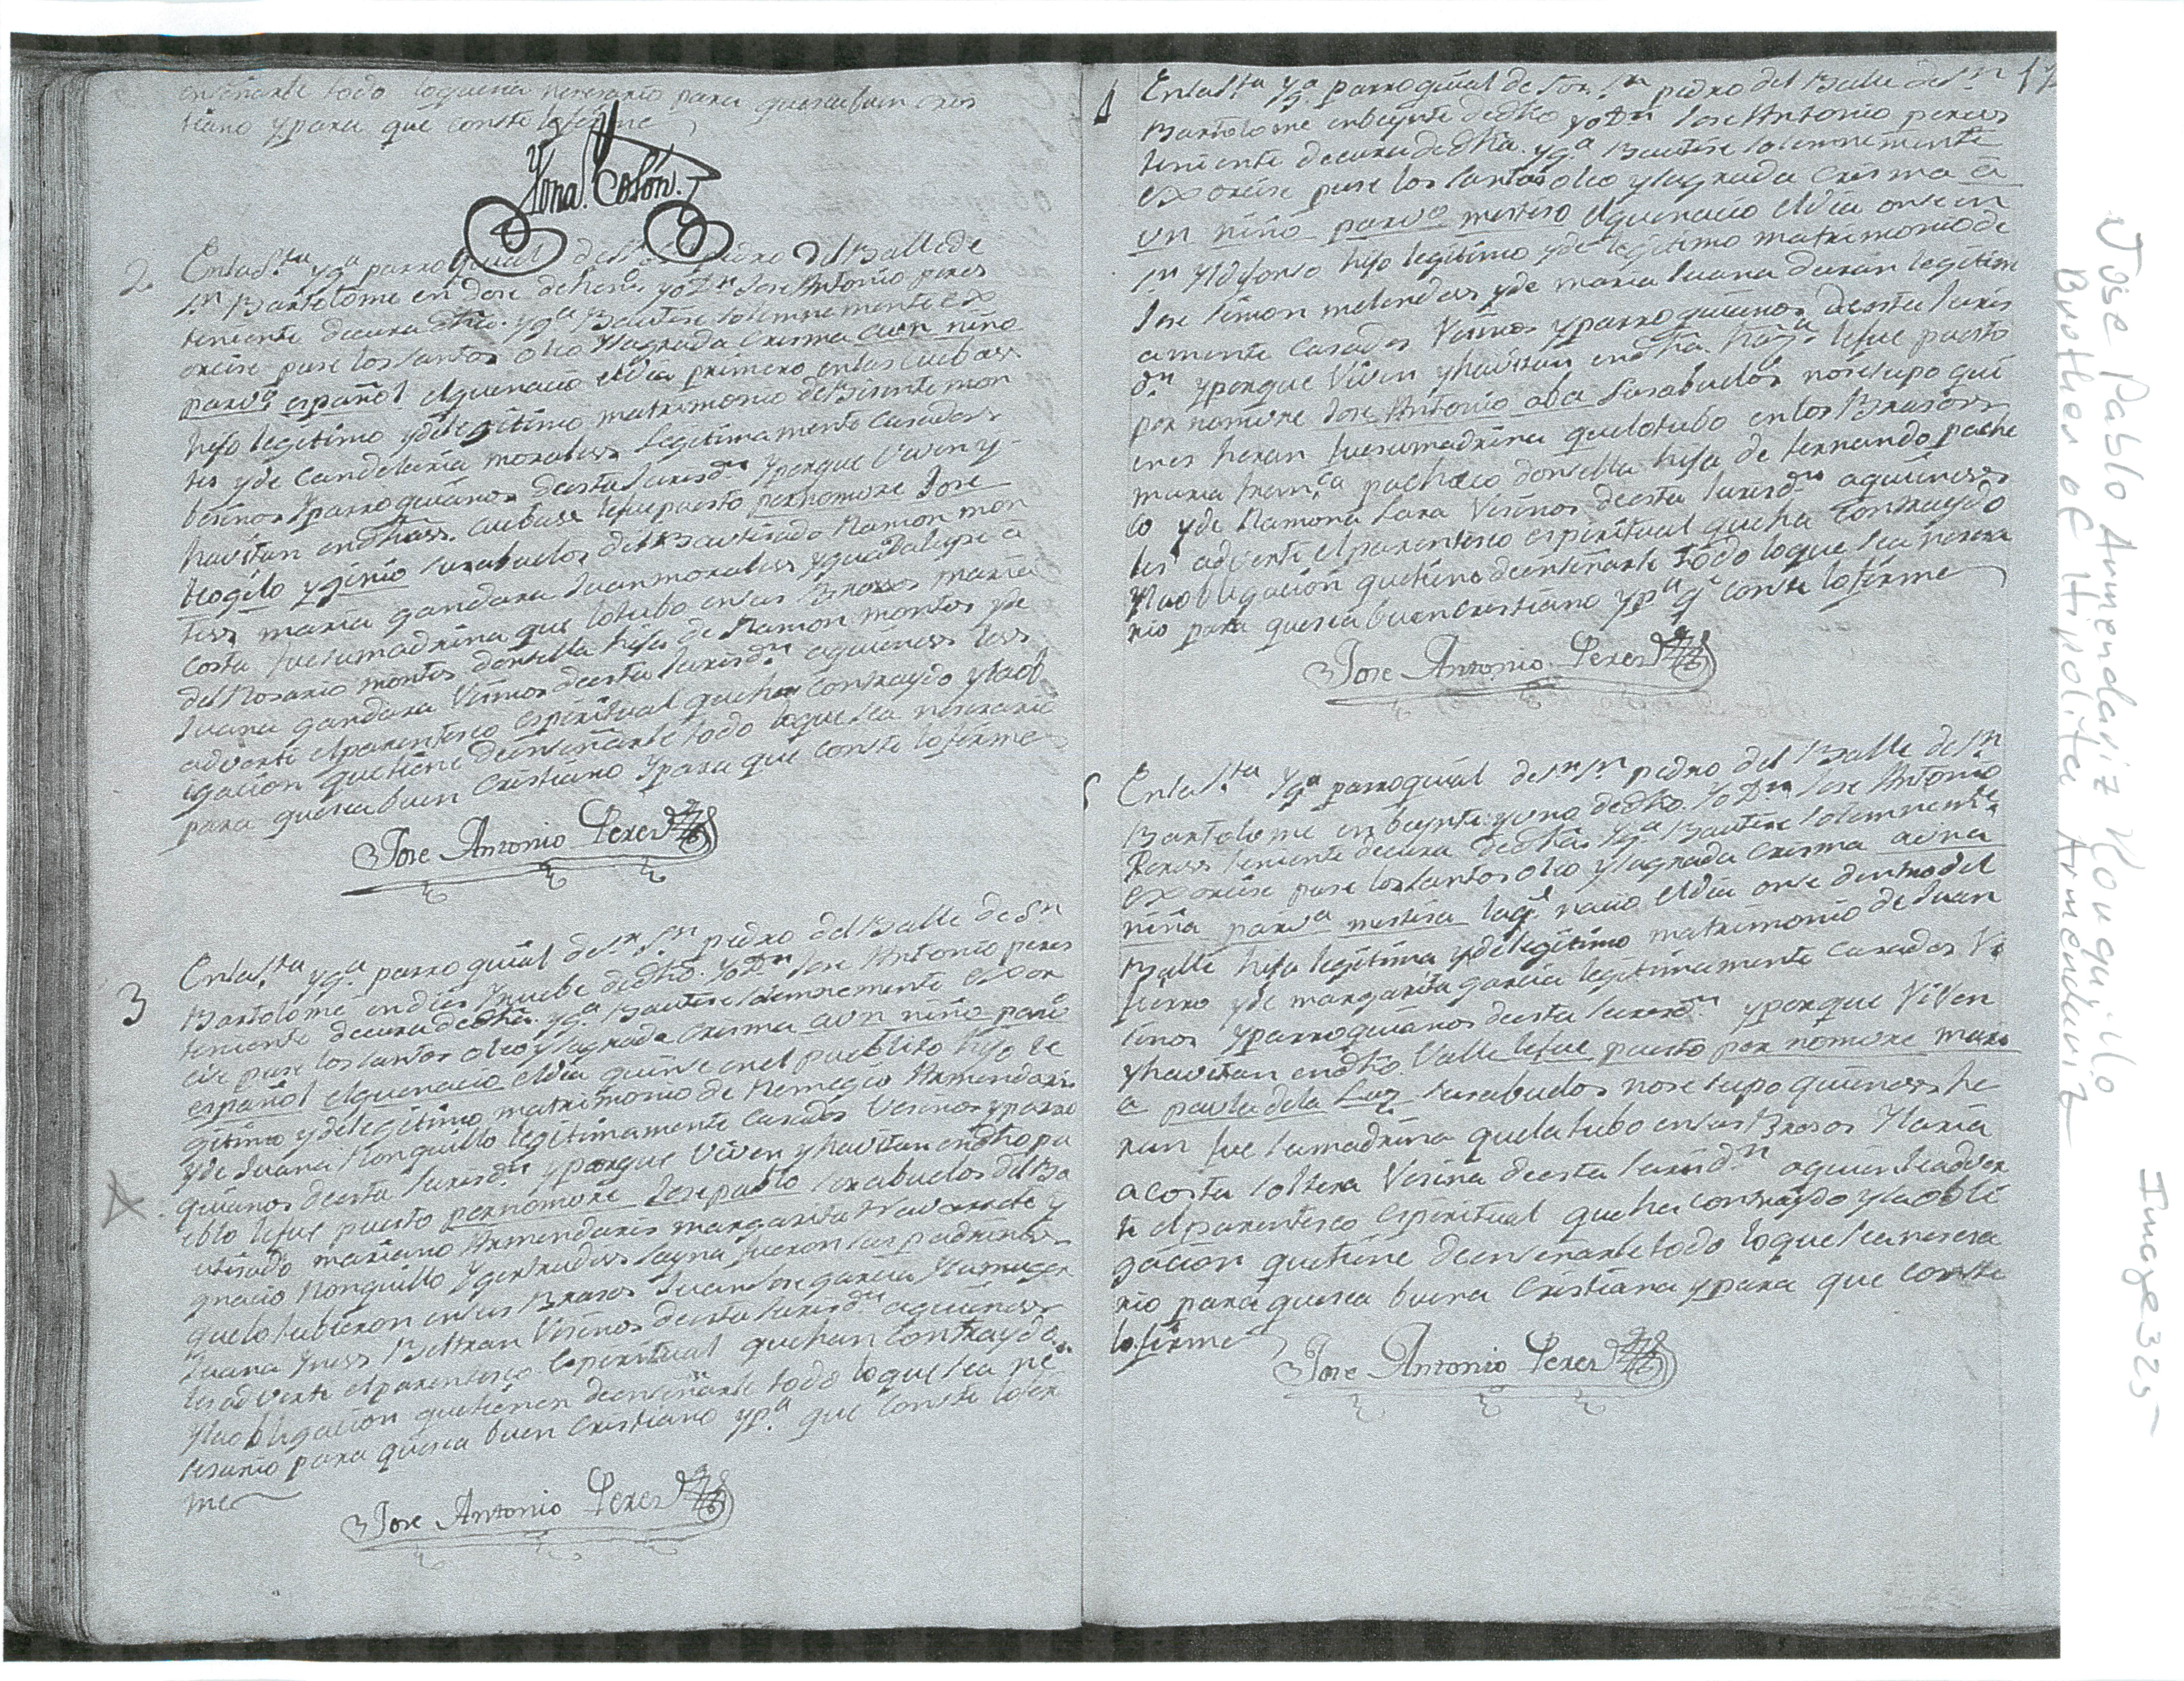 enseñarle todo loquesea nesesario para queseabuen cris
tiano ypara que conste lofirme
Yona. Colón.
2
Enlas.ta yg.a parroquial de S.r S.n pedro del Balle de
S.n Bartolome en dose de hen.o yo D.n Jose Antonio peres
teniente decura dedha. yg.a Bautise solemnemente ex
orcise puse los santos oleo ysagrada crisma aun niño
parv.o español elquenacio eldia primero enlas cuebass
hijo legitimo ydelegitimo matrimonio de Bisente mon
tes yde Candelaria moraless legitimamente casadoss
besinos yparroquianos deesta Jurisd.n yporque viven y
havitan endhass. cuebass lefuepuesto pornomvre Jose
Trogilo yginio susabuelos del Bautisado Ramon mon
tess maria gandara Juan moraless yguadalupe a
costa fuesumadrina que lotubo ensus Brasos maria
del Rosario montes donsella hija de Ramon montes yde
Juana gandara Vesinos deesta Jurisd.n aquieness less
adverti elparentesco espiritual quehan contraydo ylaobl
igacion quetiene deenseñarle todo loquesea nesesario
para queseabuen Cristiano ypara que conste lofirme
Jose Antonio Peres
3
Enlas.ta yg.a parroquial de S.r S.n pedro del Balle de S.n
Bartolome endies ynuebe dedho. yo D.n Jose Antonio peres
teniente decura dedha. yg.a Bautise solemnemente exor
cise puse los santos oleo ysagrada crisma aun niño parv.o
español elquenacio eldia quinse enel pueblito hijo le
gitimo ydelegitimo matrimonio de Remegio Armendaris
yde Juana Ronquillo legitimamente casados Vesinos yparro
quianos deesta Jurisd.n yporque viven yhavitan endhopu
eblo lefue puesto pornomvre Josepablo susabuelos delBa
utisado mariano Armendaris margarita Navarrete y
gnacio Ronquillo ygertrudiss fueron sus padrinos
quelo tubieron ensus Brasos Juan Jose garcia ysumuger
Juana Yness Beltran Vesinos deesta Jurisd.n aquieness
lesadverti elparentesco Espiritual quehan contraydo
ylaobligacion quetienen deenseñarle todo loquesea ne
sesario para quesea buen cristiano yp.a que conste lofir
me
Jose Antonio Peres
4
17
Enlas.ta yg.a parroquial de Sor. S.n pedro del Balle de S.n
Bartolome enbeynte dedho yo D.n Jose Antonio peress
teniente decura dedha. yg.a Bautise solemnemente
exorcise puse los santos oleo ysagrada crisma a
un niño parv.o mestiso elquenacio eldia onse en
S.n Yldefonso hijo legitimo yde legitimo matrimonio de
Jose simon melendess yde maria Juana duran legitim
amente casados Vesinos yparroquianos deesta Juris
d.n yporque Viven yhavitan endha. lefue puesto
por nomvre Jose Antonio susabuelos nosesupo qui
enes heran fuesumadrina quelotubo enlos Brasoss
maria fran.ca pacheco donsella hija de fernando pache
co yde Ramona Lara Vesinos deesta Jurisd.n aquieness
les adverti elparentesco espiritual queha contraydo
ylaobligacion quetiene deenseñarle todo loque sea nesesa
rio para quesea buencristiano yp.a q.e conste lofirme
Jose Antonio Peres
5
Enlas.ta yg.a parroquial de S.r S.n pedro del Balle de S.n
Bartolome enbeynte yuno dedho. yo D.n Jose Antonio
Peress teniente decura dedha. yg.a Bautise solemnemente
exorcise puse los santos oleo ysagrada crisma auna
niña parv.a mestisa laq.e nacio eldia onse dentrodel
Balle hija legitima ydelegitimo matrimonio de Juan
fierro yde margarita garcia legitimamente casados Ve
sinos yparroquianos deesta Jurisd.n yporque Viven
yhavitan endho. Valle lefue puesto por nomvre mari
a paula dela Luz susabuelos nosesupo quieness he
ran fue sumadrina quelatubo ensus Brasos Maria
acosta soltera Vesina deesta Jurisd.n aquien leadver
ti elparentesco espiritual queha contraydo ylaobli
gacion quetiene deenseñarle todo loquesea nesesa
rio para quesea buena cristiana ypara que conste
lofirme
Jose Antonio Peres
Jose Pablo Armendariz Ronquillo
Brother of Hipolita Armendariz
Image 325